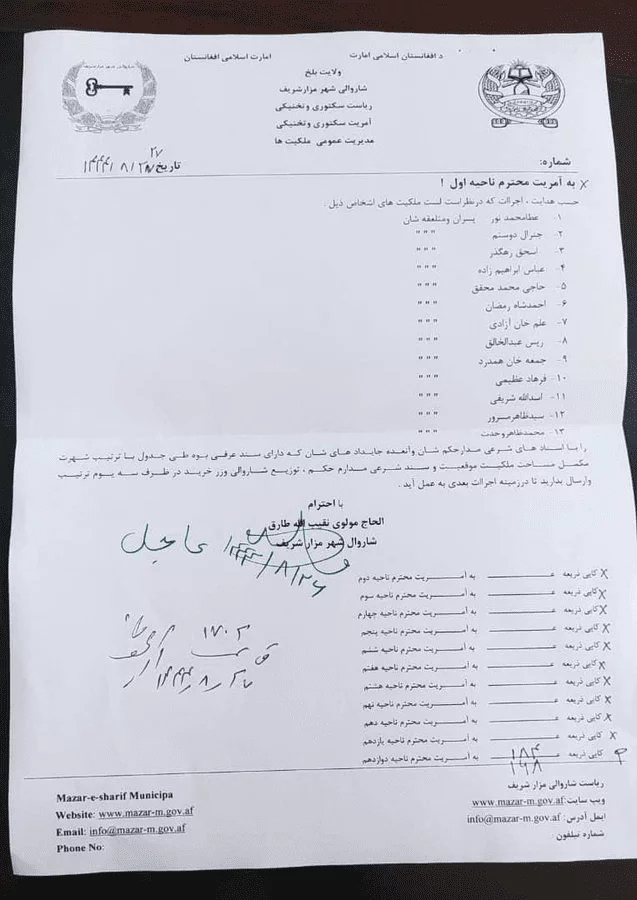 د افغانستان اسلامی امارت
امارت اسلامی افغانستان
ولایت بلخ
شاروالی شهر مزارشریف
ریاست سکتوری وتخنیکی
آمریت سکتوری وتخنیکی
مدیریت عمومی ملکیت ها
شماره:
تاریخ ۱۴۴۴/۸/
به آمریت محترم ناحیه اول !
حسب هدایت ، اجراات که درنظراست لست ملکیت های اشخاص ذیل .
۱- عطامحمد نور پسران ومتلعقه شان
۲- جنرال دوستم " " "
۳- اسحق رهگذر " " "
۴- عباس ابراهیم زاده " " "
۵- حاجی محمد محقق " " "
۶- احمدشاه رمضان " " "
۷- علم خان آزادی " " "
۸- ریس عبدالخالق " " "
۹- جمعه خان همدرد " " "
۱۰- فرهاد عظیمی " " "
۱۱- اسدالله شریفی " " "
۱۲- سیدظاهرمسرور " " "
۱۳- محمدظاهروحدت " " "
را با اسناد های شرعی مدارحکم شان وآنعده جایداد های شان که دارای سند عرفی بوه طی جدول با ترتیب شهرت
مکمل مساحت ملکیت موقعیت و سند شرعی مدارم حکم ، توزیع شاروالی وزر خرید در ظرف سه یوم ترتیب
وارسال بدارید تا درزمینه اجراات بعدی به عمل آید .
با احترام
الحاج مولوی نقیب الله طارق
شاروال شهر مزار شریف
عاجل
۱۴۴۴/۸/۲۶
۱۷۰۲
کاپی ذریعه ــــ به آمــریت محترم ناحیه دوم
کاپی ذریعه ــــ به آمــریت محترم ناحیه سوم
کاپی ذریعه ــــ به آمــریت محترم ناحیه چهارم
کاپی ذریعه ــــ به آمــریت محترم ناحیه پنجم
کاپی ذریعه ــــ به آمــریت محترم ناحیه ششم
کاپی ذریعه ــــ به آمــریت محترم ناحیه هفتم
کاپی ذریعه ــــ به آمــریت محترم ناحیه هشتم
کاپی ذریعه ــــ به آمــریت محترم ناحیه نهم
کاپی ذریعه ــــ به آمــریت محترم ناحیه دهم
کاپی ذریعه ــــ به آمــریت محترم ناحیه یازدهم
کاپی ذریعه ــــ به آمــریت محترم ناحیه دوازدهم
۱۸۴
۱۹۸
ریاست شاروالی مزار شریف
ویب سایت: www.mazar-m.gov.af
ایمل آدرس: info@mazar-m.gov.af
شماره تیلفون :
Mazar-e-sharif Municipa
Website: www.mazar-m.gov.af
Email: info@mazar-m.gov.af
Phone No: